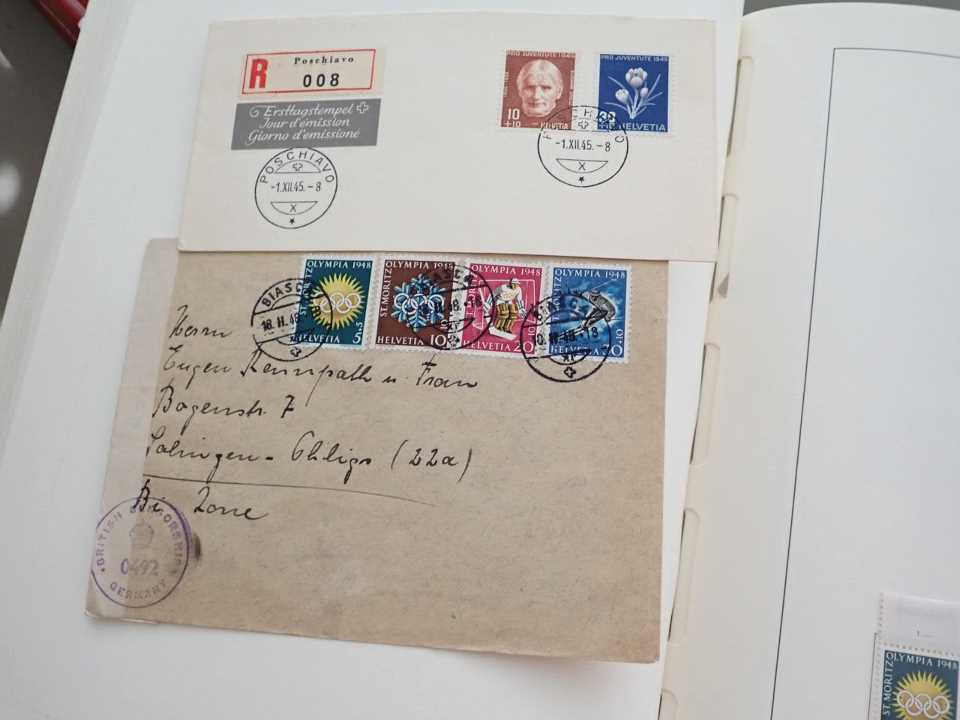 R Poschiavo
008
Ersttagstempel
Jour d'émission
Giorno d'emissione
POSCHIAVO
-1.XII.45.-8
X
PRO JUVENTUTE 1945
10
+10
HELVETIA
PRO JUVENTUTE 1945
HELVETIA
-1.XII.45.-8
X
ST. MORITZ
OLYMPIA 1948
HELVETIA
5+5
ST. MORITZ
OLYMPIA 1948
HELVETIA
10
OLYMPIA 1948
HELVETIA
20
+10
OLYMPIA 1948
30
+10
BIASCA
Herrn
Eugen u. Frau
Bogenstr 7
Solingen - Ohligs (22a)
Bi Zone
BRITISH CENSORSHIP
0492
GERMANY
ST. MORITZ
OLYMPIA 1948